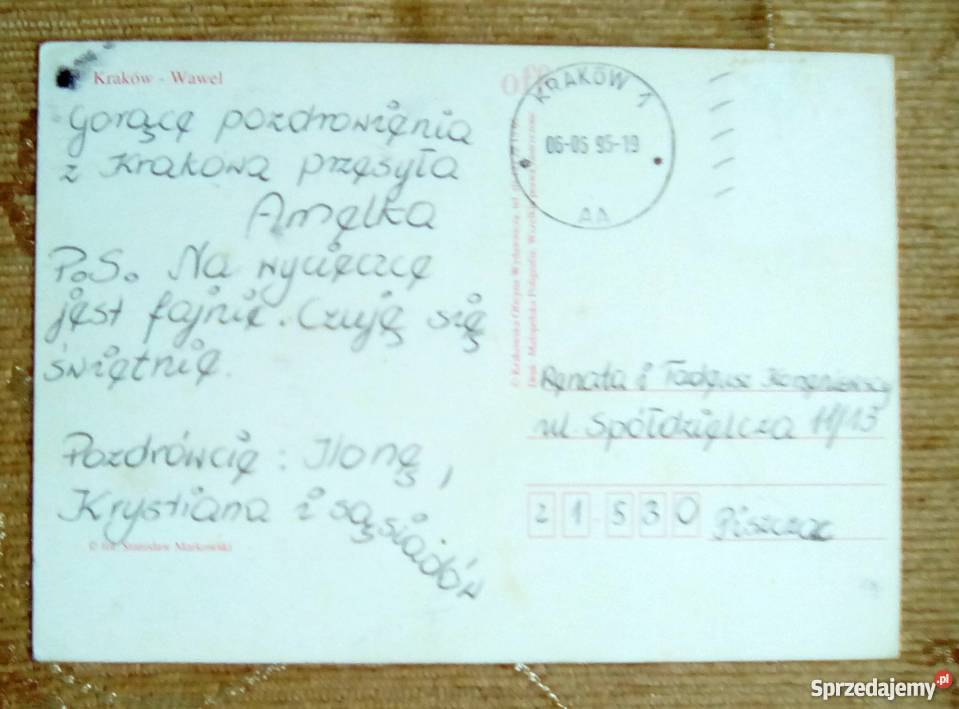 Kraków - Wawel
Gorące pozdrowienia
z Krakowa przesyła
Amelka
P.S. Na wycieczce
jest fajnie. Czuję się
świetnie.
Pozdrówcie: Ilonę,
Krystiana i sąsiadów
© fot. Stanisław Markowski
KRAKÓW 1
06-05 95-19
AA
© Krakowska Oficyna Wydawnicza
Druk: Małopolska Poligrafia
Renata i Tadeusz
ul Spółdzielcza 11/13
21-530 Piszczac
Sprzedajemy.pl